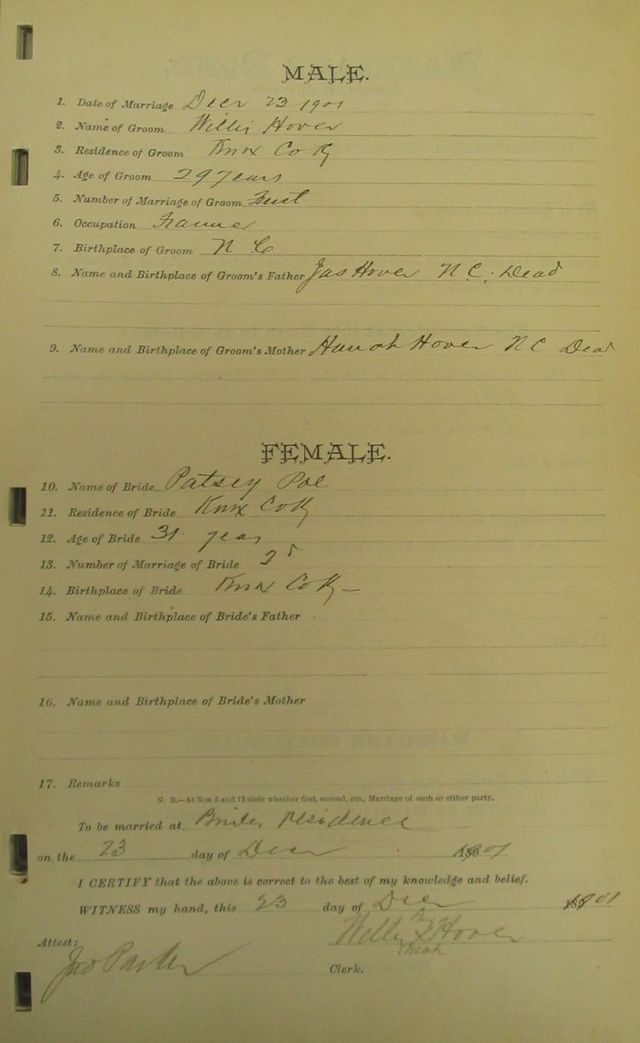 MALE.
1. Date of Marriage Decr 23 1901
2. Name of Groom Willis Hover
3. Residence of Groom Knox Co Ky
4. Age of Groom 29 years
5. Number of Marriage of Groom First
6. Occupation Farmer
7. Birthplace of Groom N C
8. Name and Birthplace of Groom's Father Jas Hover N C. Dead
9. Name and Birthplace of Groom's Mother Hanah Hover N C Dead
FEMALE.
10. Name of Bride Patsey Poe
11. Residence of Bride Knox Co Ky
12. Age of Bride 31 years
13. Number of Marriage of Bride 2d
14. Birthplace of Bride Knox Co Ky
15. Name and Birthplace of Bride's Father
16. Name and Birthplace of Bride's Mother
17. Remarks
N. B.—At Nos. 5 and 13 state whether first, second, etc., Marriage of each or either party.
To be married at Brides Residence
on the 23 day of Decr 1901
I CERTIFY that the above is correct to the best of my knowledge and belief.
WITNESS my hand, this 23 day of Decr 1901
Willis X Hover
mark
Attest:
Jno Parker
Clerk.